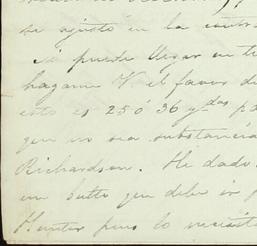 se ajustó en la contra
si puede llegar en t
hagame V el favor d
esto es 25 ó 36 yds pa
que no sea substancia
Richardson. He dado
un bulto que debe ir p
Hunter pues lo necesit